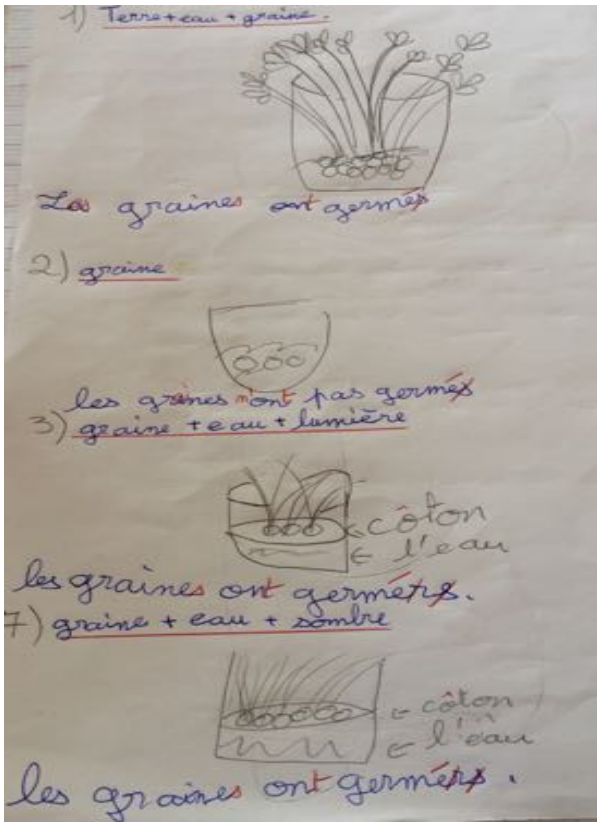 1) Terre + eau + graine.
Les graines ont germés
2) graine
les graines n'ont pas germés
3) graine + eau + lumière
côton
l'eau
les graines ont germérs.
7) graine + eau + sombre
côton
l'eau
les graines ont germérs.